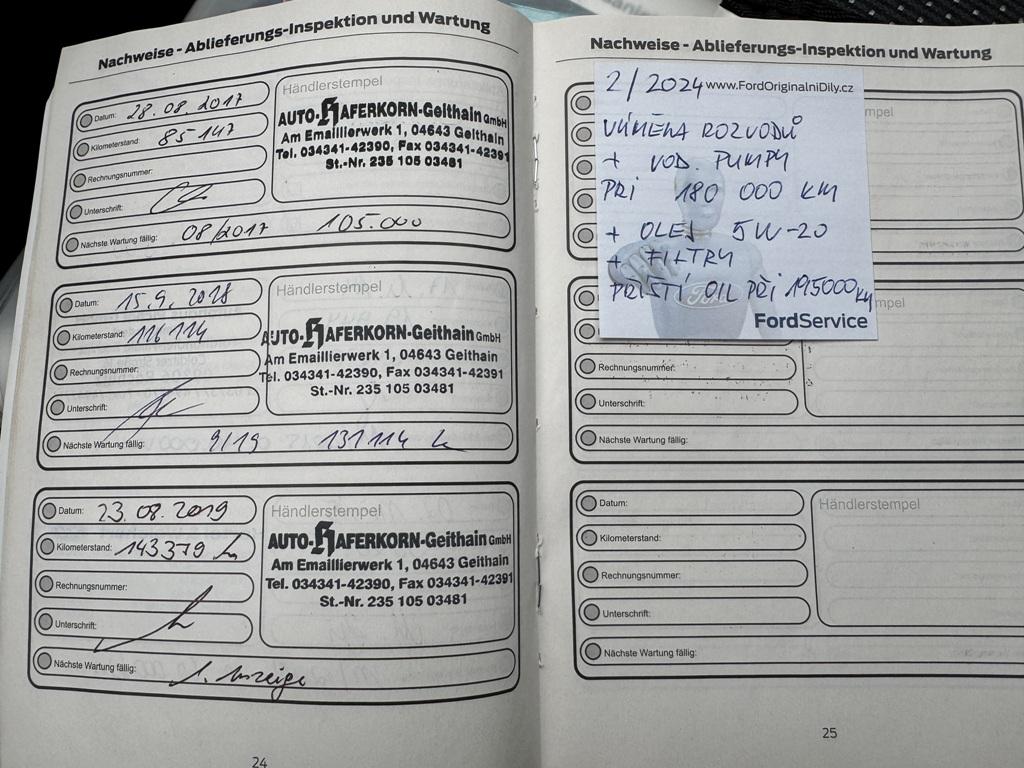 Nachweise - Ablieferungs-Inspektion und Wartung
Datum: 28.08.2017
Kilometerstand: 85 147
Rechnungsnummer:
Unterschrift:
Nächste Wartung fällig: 08/2017 105.000
Händlerstempel
AUTO-HAFERKORN-Geithain GmbH
Am Emaillierwerk 1, 04643 Geithain
Tel. 034341-42390, Fax 034341-42391
St.-Nr. 235 105 03481
Datum: 15.9.2018
Kilometerstand: 116 114
Rechnungsnummer:
Unterschrift:
Nächste Wartung fällig: 9/19 131 114
Händlerstempel
AUTO-HAFERKORN-Geithain GmbH
Am Emaillierwerk 1, 04643 Geithain
Tel. 034341-42390, Fax 034341-42391
St.-Nr. 235 105 03481
Datum: 23.08.2019
Kilometerstand: 143 379
Rechnungsnummer:
Unterschrift:
Nächste Wartung fällig: s. Anzeige
Händlerstempel
AUTO-HAFERKORN-Geithain GmbH
Am Emaillierwerk 1, 04643 Geithain
Tel. 034341-42390, Fax 034341-42391
St.-Nr. 235 105 03481
24
Nachweise - Ablieferungs-Inspektion und Wartung
2/2024 www.FordOriginalniDily.cz
VÝMĚNA ROZVODŮ
+ VOD. PUMPY
PŘI 180 000 KM
+ OLEJ 5W-20
+ FILTRY
PŘÍŠTÍ OIL PŘI 195000 KM
Ford
FordService
Rechnungsnummer:
Unterschrift:
Nächste Wartung fällig:
Datum:
Kilometerstand:
Rechnungsnummer:
Unterschrift:
Nächste Wartung fällig:
Händlerstempel
25